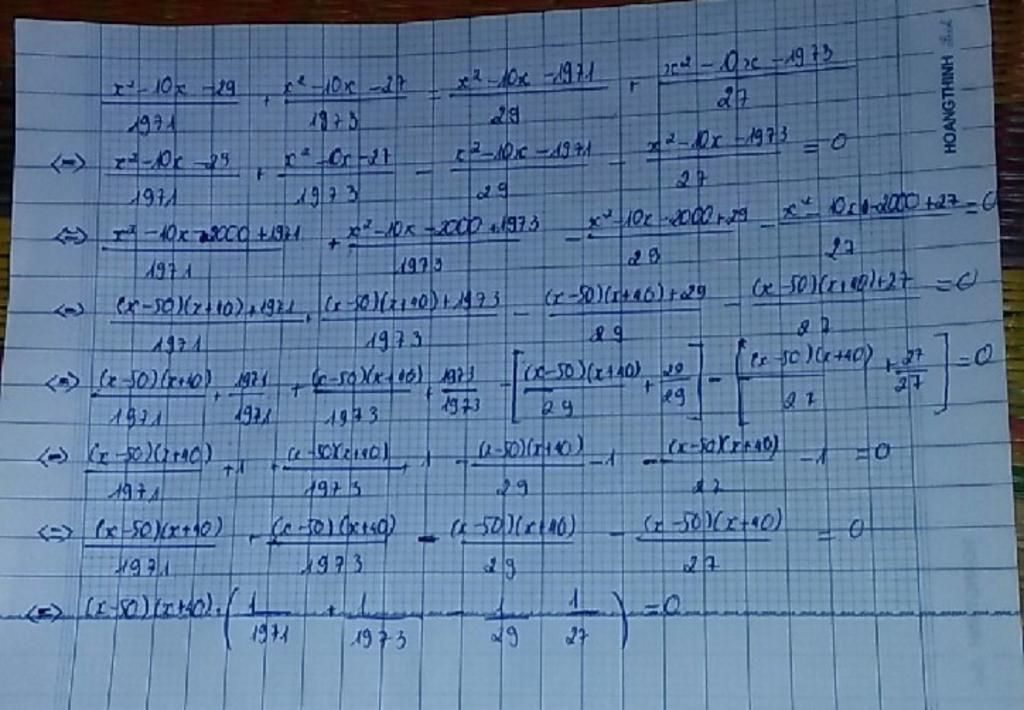 (x² - 10x - 29)/1971 + (x² - 10x - 27)/1973 = (x² - 10x - 1971)/29 + (x² - 10x - 1973)/27
<=> (x² - 10x - 29)/1971 + (x² - 10x - 27)/1973 - (x² - 10x - 1971)/29 - (x² - 10x - 1973)/27 = 0
<=> (x² - 10x - 2000 + 1971)/1971 + (x² - 10x - 2000 + 1973)/1973 - (x² - 10x - 2000 + 29)/29 - (x² - 10x - 2000 + 27)/27 = 0
<=> ((x-50)(x+40) + 1971)/1971 + ((x-50)(x+40) + 1973)/1973 - ((x-50)(x+40) + 29)/29 - ((x-50)(x+40) + 27)/27 = 0
<=> (x-50)(x+40)/1971 + 1971/1971 + (x-50)(x+40)/1973 + 1973/1973 - [(x-50)(x+40)/29 + 29/29] - [(x-50)(x+40)/27 + 27/27] = 0
<=> (x-50)(x+40)/1971 + 1 + (x-50)(x+40)/1973 + 1 - (x-50)(x+40)/29 - 1 - (x-50)(x+40)/27 - 1 = 0
<=> (x-50)(x+40)/1971 + (x-50)(x+40)/1973 - (x-50)(x+40)/29 - (x-50)(x+40)/27 = 0
<=> (x-50)(x+40).(1/1971 + 1/1973 - 1/29 - 1/27) = 0
HOANGTHINH